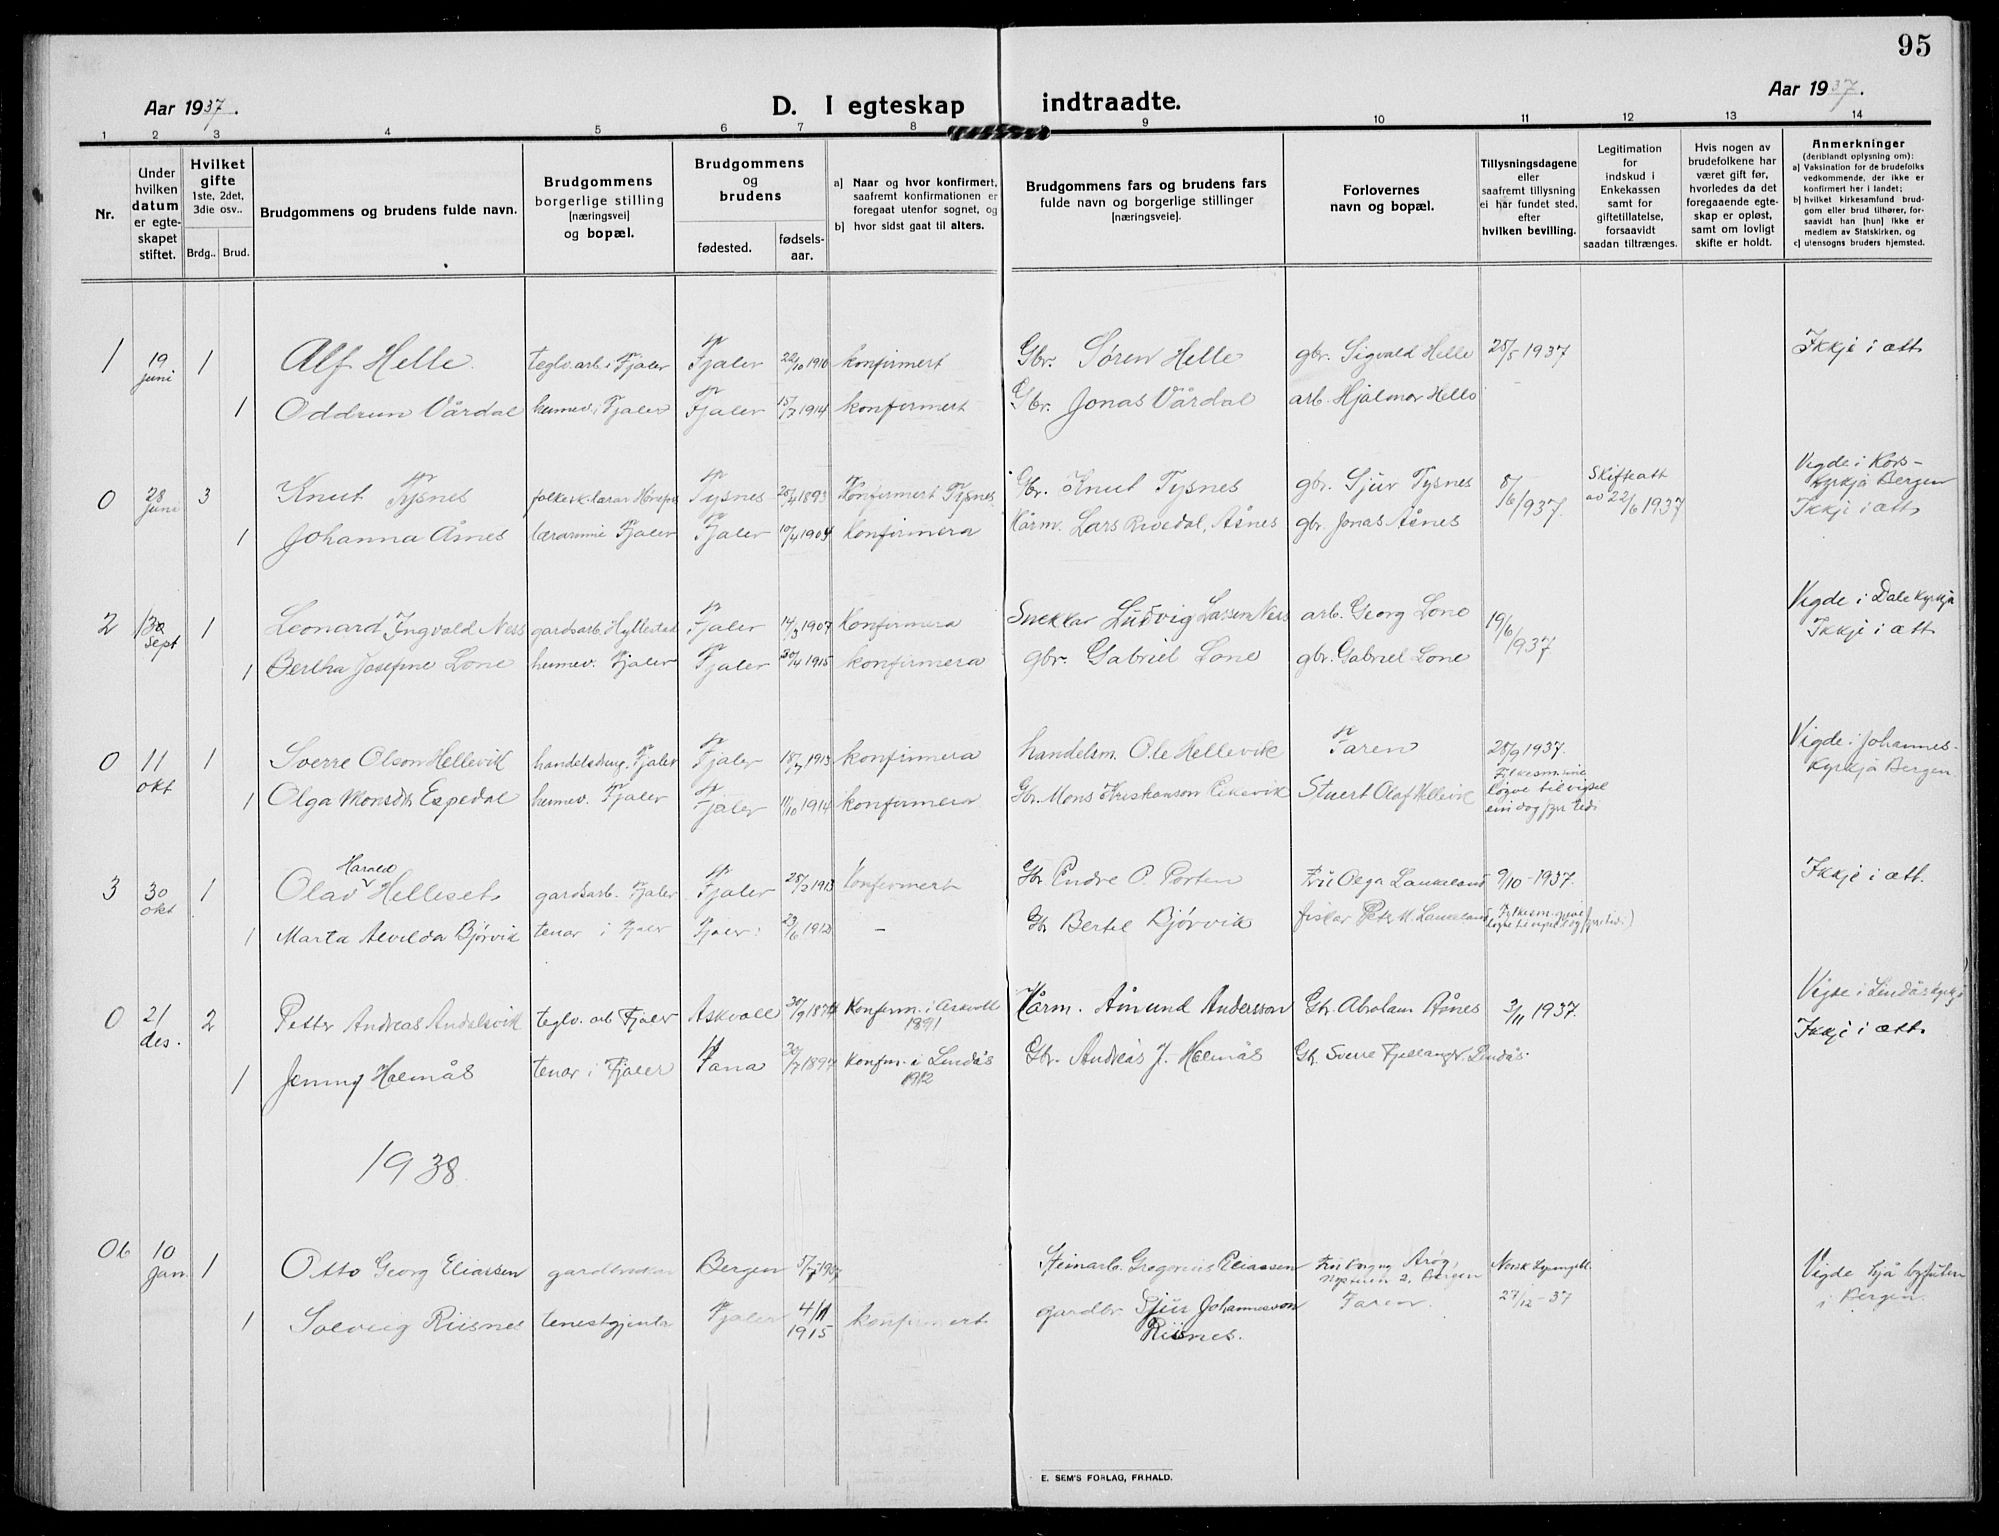 95
Aar 1937.
D. I egteskap indtraadte.
Aar 1937.
1 2 3 4 5 6 7 8 9 10 11 12 13 14
Nr.
Under hvilken datum er egteskapet stiftet.
Hvilket gifte 1ste, 2det, 3die osv..
Brdg.. Brud.
Brudgommens og brudens fulde navn.
Brudgommens borgerlige stilling [næringsvei] og bopæl.
Brudgommens og brudens
fødested.
fødselsaar.
a] Naar og hvor konfirmert, saafremt konfirmationen er foregaat utenfor sognet, og
b] hvor sidst gaat til alters.
Brudgommens fars og brudens fars fulde navn og borgerlige stillinger [næringsveie].
Forlovernes navn og bopæl.
Tillysningsdagene eller saafremt tillysning ei har fundet sted, efter hvilken bevilling.
Legitimation for indskud i Enkekassen samt for giftetillatelse, forsaavidt saadan tiltrænges.
Hvis nogen av brudefolkene har været gift før, hvorledes da det foregaaende egteskap er opløst, samt om lovligt skifte er holdt.
Anmerkninger
(deriblandt oplysning om):
a) Vaksination for de brudefolks vedkommende, der ikke er konfirmert her i landet;
b) hvilket kirkesamfund brudgom eller brud tilhører, forsaavidt han [hun] ikke er medlem av Statskirken, og
c) utensogns bruders hjemsted.
1 19 juni 1 Alf Helle. teglv.arb. i Fjaler Fjaler 22/10 1910 konfirmert Gbr. Søren Helle gbr. Sigvald Helle 25/5 1937 Ikkje i ætt
1 Oddrun Vårdal heimev. i Fjaler Fjaler 15/7 1914 konfirmert Gbr. Jonas Vårdal arb. Hjalmar Helle
0 28 juni 3 Knut Tysnes Tysnes 1893 Konfirmert Tysnes Gbr. Knut Tysnes gbr. Sjur Tysnes 8/6 1937 Skifteatt av 22/6 1937 Vigde i Kors-kyrkja Bergen Ikkje i ætt
1 Johanna Åsnes lærarinne Fjaler Fjaler 10/4 1904 konfirmera Kårm. Lars Rivedal, Åsnes gbr. Jonas Åsnes
2 Sept 1 Leonard Ingvald Ness gardsarb. Hyllestad Fjaler 14/3 1907 konfirmera Snekkar Ludvig Larsen Ness arb. Georg Lone 19/6 1937 Vigde i Dale kyrkja Ikkje i ætt
1 Bertha Josefine Lone heimev. Fjaler Fjaler 30/4 1915 konfirmera gbr. Gabriel Lone gbr. Gabriel Lone
0 11 okt 1 Sverre Olson Hellevik Fjaler Fjaler 18/7 1913 konfirmera handelsm. Ole Hellevik Faren 28/9 1937. Vigde i Johannes-kyrkja Bergen
1 Olga Monsdtr Espedal heimev. Fjaler Fjaler 11/10 1914 konfirmera Gbr. Mons Kristianson Stuert Olaf Hellevik Fylkesm. gjeve løyve til vigsel ein dag fyr tida
3 30 okt 1 Olav Harald Helleset gardsarb. Fjaler Fjaler 28/2 1913 konfirmert Gbr Endre O. Porten Fru Olga Laukeland 9/10 - 1937. Ikkje i ætt.
1 Marta Alvilda Bjørvik tenar i Fjaler Fjaler 23/6 1912 - Gbr Bertel Bjørvik fiskar Petr M. Laukeland
0 21 des. 2 Petter Andreas Andalsvik teglv. arb Fjaler Askvoll 30/9 1874 Konfirm. i Askvoll 1891 Kårm. Åmund Andersson Gbr. Abraham Åsnes 3/11 1937. Vigde i Lindås kyrkja Ikkje i ætt
1 Jenny Halmås tenar i Fjaler Fana 30/7 1897 Konfirm. i Lindås 1912 Gbr. Andreas J. Halmås Gbr. Sverre Fjellanger, Lindås.
1938
06 10 Jan 1 Otto Georg Eliassen Bergen 1907 Steinarb. Gregorius Eliassen 27/12-37 Vigde hjå byfuten i Bergen
1 Solveig Risnes tenestgjenta Fjaler 4/11 1915 konfirmert gardbr Sjur Johannesson Risnes. Faren.
E. SEM'S FORLAG, FR.HALD.